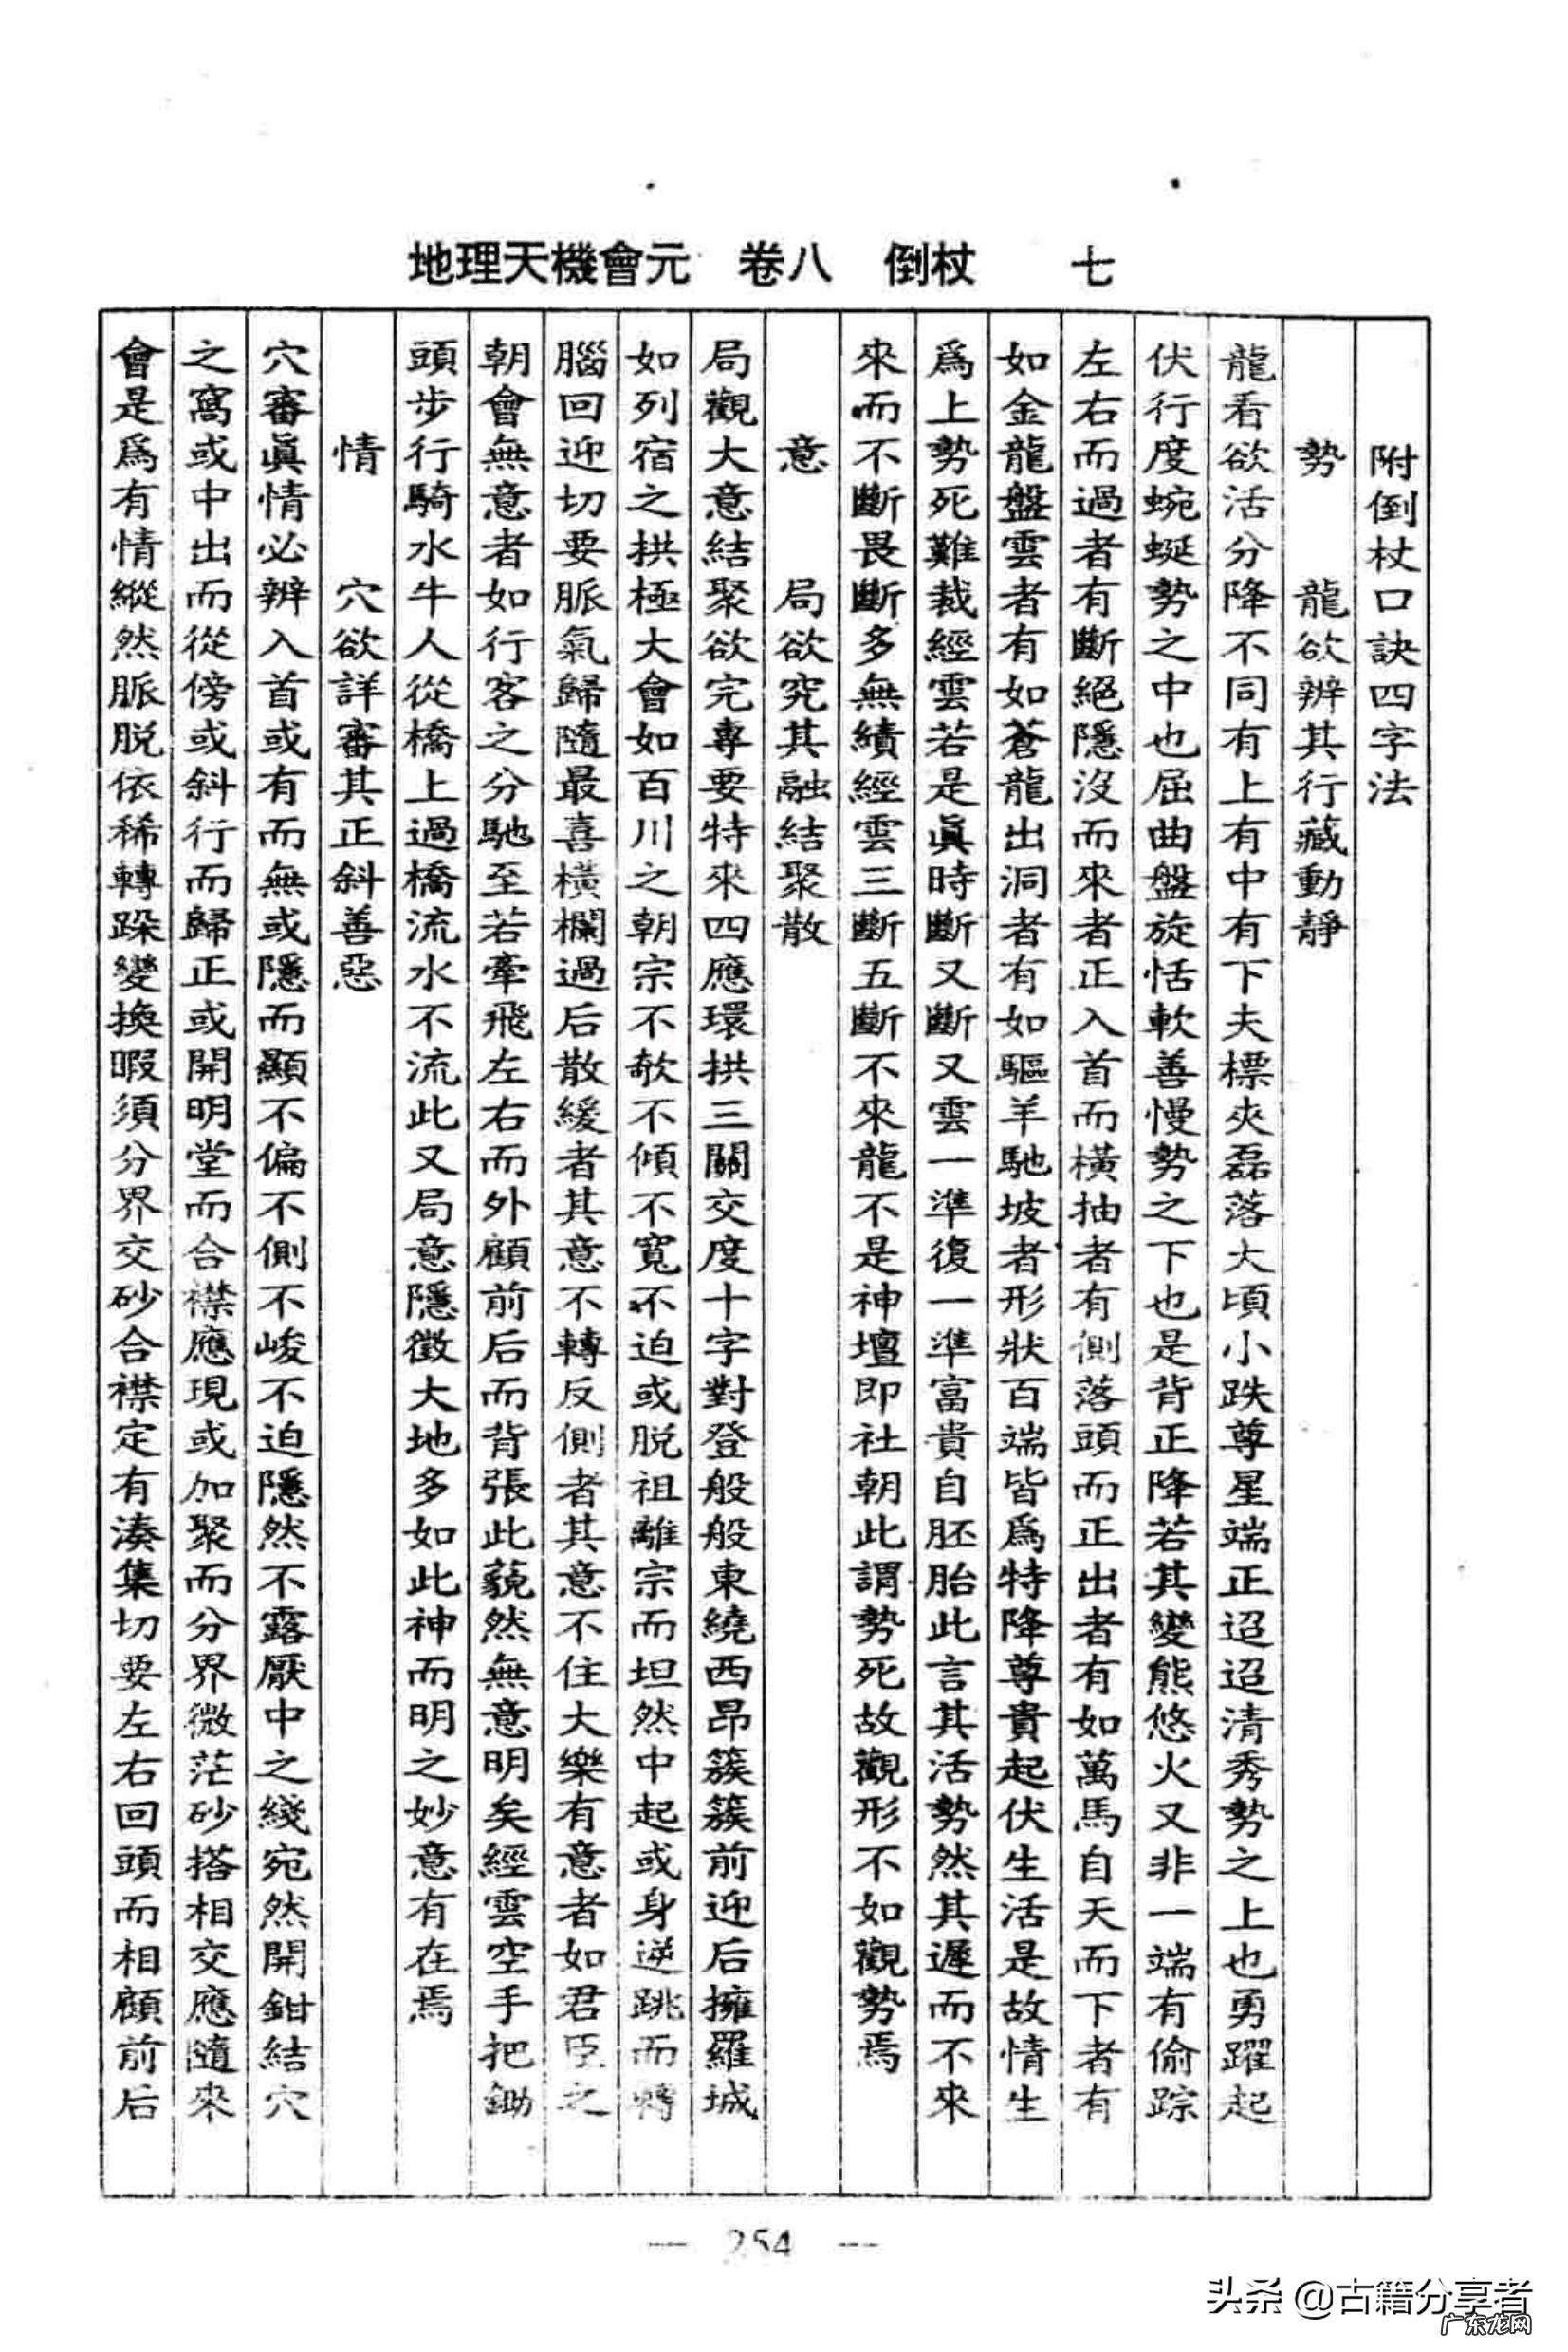 地理天機會元 卷八 倒杖 七
附倒杖口訣四字法
勢 龍欲辨其行藏動靜
龍看欲活分降不同有上有中有下夫標夾磊落大頃小跌尊星端正迢迢清秀勢之上也勇躍起
伏行度蜿蜒勢之中也屈曲盤旋恬軟善慢勢之下也是背正降若其變熊悠火又非一端有偷踪
左右而過者有斷絕隱沒而來者正入首而橫抽者有側落頭而正出者有如萬馬自天而下者有
如金龍盤雲者有如蒼龍出洞者有如驅羊馳坡者形狀百端皆爲特降尊貴起伏生活是故情生
爲上勢死難裁經雲若是眞時斷又斷又雲一準復一準富貴自胚胎此言其活勢然其遲而不來
來而不斷畏斷多無績經雲三斷五斷不來龍不是神壇即社朝此謂勢死故觀形不如觀勢焉
意 局欲究其融結聚散
局觀大意結聚欲完專要特來四應環拱三關交度十字對登般般東繞西昂簇簇前迎后擁羅城
如列宿之拱極大會如百川之朝宗不欹不傾不寬不迫或脱祖離宗而坦然中起或身逆跳而轉
腦回迎切要脈氣歸隨最喜橫欄過后散緩者其意不轉反側者其意不住大樂有意者如君臣之
朝會無意者如行客之分馳至若牽飛左右而外顧前后而背張此藐然無意明矣經雲空手把鋤
頭步行騎水牛人從橋上過橋流水不流此又局意隱微大地多如此神而明之妙意有在焉
情 穴欲詳審其正斜善惡
穴審眞情必辨入首或有而無或隱而顯不偏不側不峻不迫隱然不露厭中之綫宛然開鉗結穴
之窩或中出而從傍或斜行而歸正或開明堂而合襟應現或加聚而分界微茫砂搭相交應隨來
會是爲有情縱然脈脱依稀轉跺變換暇須分界交砂合襟定有湊集切要左右回頭而相顧前后
— 254 —
头条 @古籍分享者
广东龙网